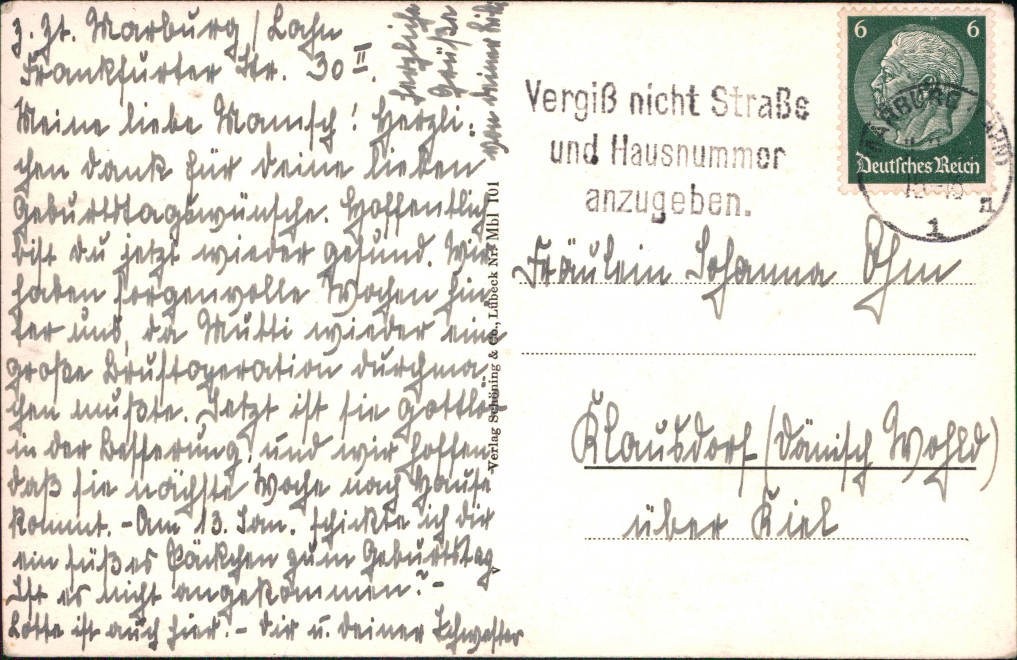 z. Zt. Marburg / Lahn
Frankfurter Str. 30 II.
Meine liebe Mamsch! Herzli-
chen Dank für deine lieben
Geburtstagswünsche. Hoffentlich
bist du jetzt wieder gesund. Wir
haben sorgenvolle Wochen hin-
ter uns, da Mutti wieder eine
große Brustoperation durchma-
chen mußte. Jetzt ist sie gottlob
in der Besserung, und wir hoffen
daß sie nächste Woche nach Hause
kommt. – Am 13. Jan. schickte ich dir
ein süßes Päckchen zum Geburtstag
Ist es nicht angekommen? –
Lotte ist auch hier. – Dir u. deiner Schwester
herzliche
Grüße
von deiner
Verlag Schöning & Co., Lübeck Nr. Mbl 101
Vergiß nicht Straße
und Hausnummer
anzugeben.
6 6
Deutsches Reich
MARBURG (LAHN)
1 n
Fräulein Johanna Ohm
Klausdorf (Dänisch Wohld)
über Kiel